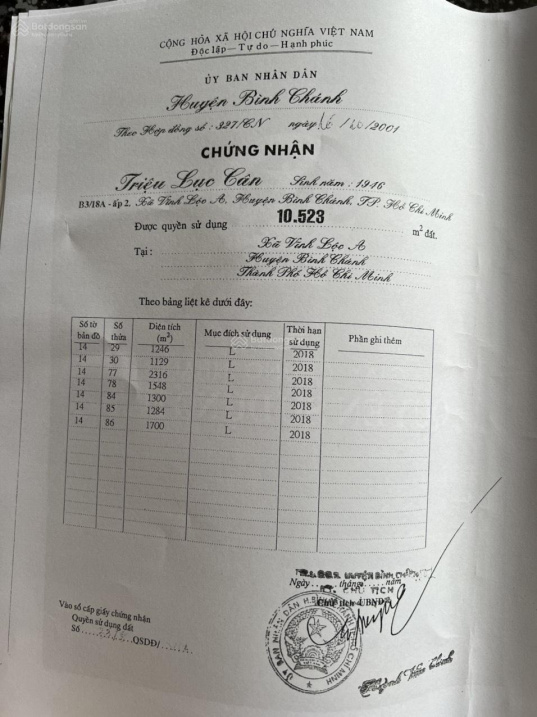 Batdongsan
CỘNG HÒA XÃ HỘI CHỦ NGHĨA VIỆT NAM
Độc lập — Tự do — Hạnh phúc
ỦY BAN NHÂN DÂN
Huyện Bình Chánh
Theo Hợp đồng số: 327/CN ngày 16/10/2001
CHỨNG NHẬN
Triệu Lục Cân Sinh năm: 1916
B3/18A - ấp 2, Xã Vĩnh Lộc A, Huyện Bình Chánh, TP. Hồ Chí Minh
Được quyền sử dụng 10.523 m² đất.
Tại: Xã Vĩnh Lộc A
Huyện Bình Chánh
Thành Phố Hồ Chí Minh
Theo bảng liệt kê dưới đây:
Số tờ bản đồ Số thửa Diện tích (m²) Mục đích sử dụng Thời hạn sử dụng Phần ghi thêm
14 29 1246 L 2018
14 30 1129 L 2018
14 77 2316 L 2018
14 78 1548 L 2018
14 84 1300 L 2018
14 85 1284 L 2018
14 86 1700 L 2018
HUYỆN BÌNH CHÁNH
Ngày.....tháng.....năm
CHỦ TỊCH
Chủ tịch UBND
Vào sổ cấp giấy chứng nhận
Quyền sử dụng đất
Số QSDĐ/
ỦY BAN NHÂN DÂN H.BÌNH CHÁNH HỒ CHÍ MINH